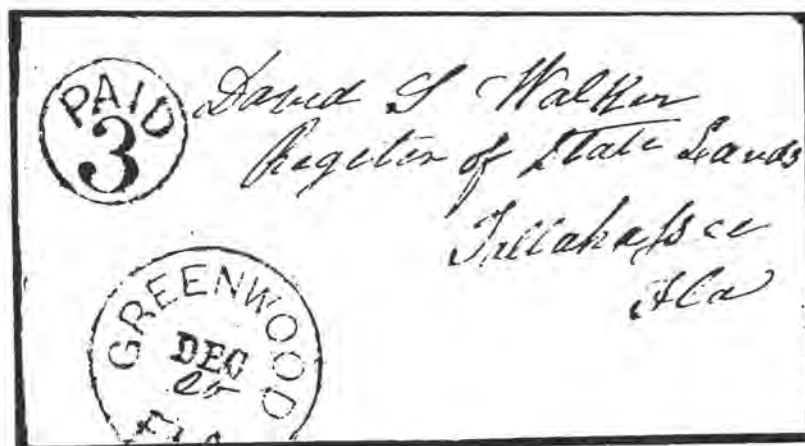 PAID
3
David S Walker
Register of State Lands
Tallahassee
Fla
GREENWOOD
DEC
FLA